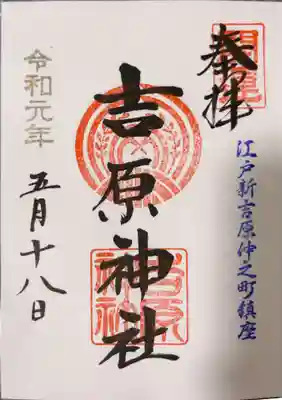 奉拝
開運
江戸新吉原仲之町鎮座
吉原神社
吉原神社
令和元年
五月十八日